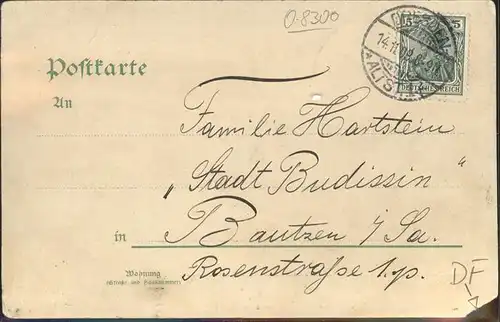 0-8300
DRESDEN
ALTST.
5 5
DEUTSCHES REICH
Postkarte
An
Familie Hartstein
„Stadt Budissin"
in Bautzen i/Sa.
Rosenstraße 1.p.
Wohnung
(Straße und Hausnummer)
DF